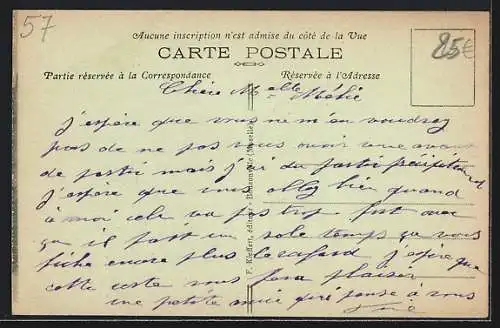 57
Aucune inscription n'est admise du côté de la Vue
CARTE POSTALE
85€
Partie réservée à la Correspondance
Réservée à l'Adresse
Chère Melle Mélie
J'espère que vous ne m'en voudrez
pas de ne pas vous avoir vue avant
de partir mais j'ai du partir précipitement
J'espère que vous allez bien quand
à moi cela va pas trop fort avec
ça il fait un sale temps ça vous
fiche encore plus le cafard j'espère que
cette carte vous fera plaisir
une petite amie qui pense à vous
F. Kieffert, éditeur,